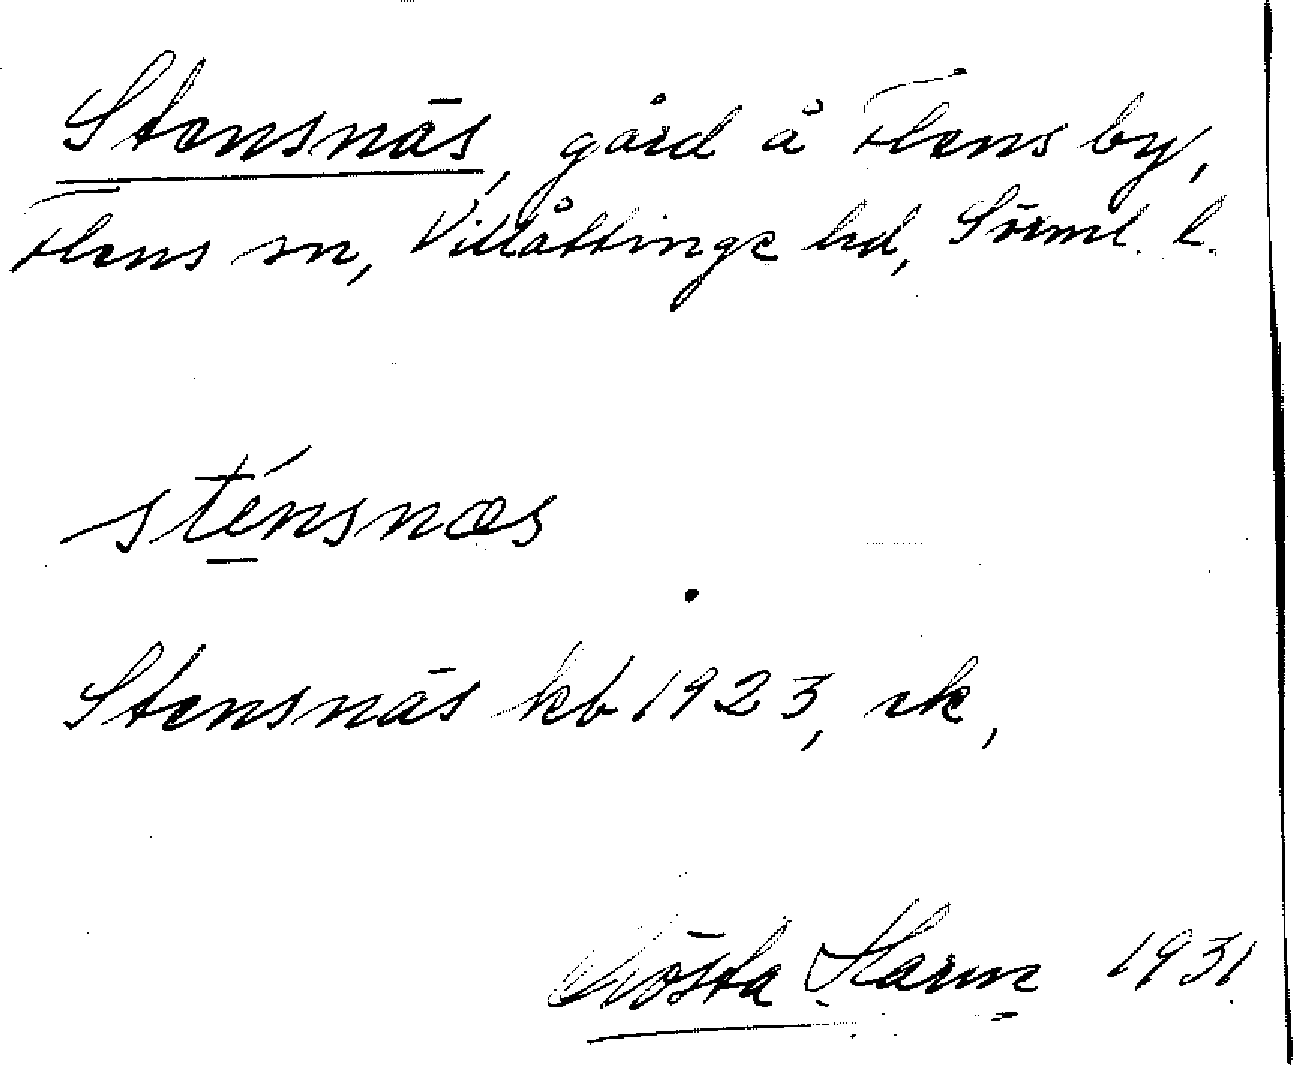 Stensnäs, gård å Flens by,
Flens sn, Villåttinge hd, Sörml. l.
sténsnæs
Stensnäs kb 1923, rk,
Gösta Harm 1931